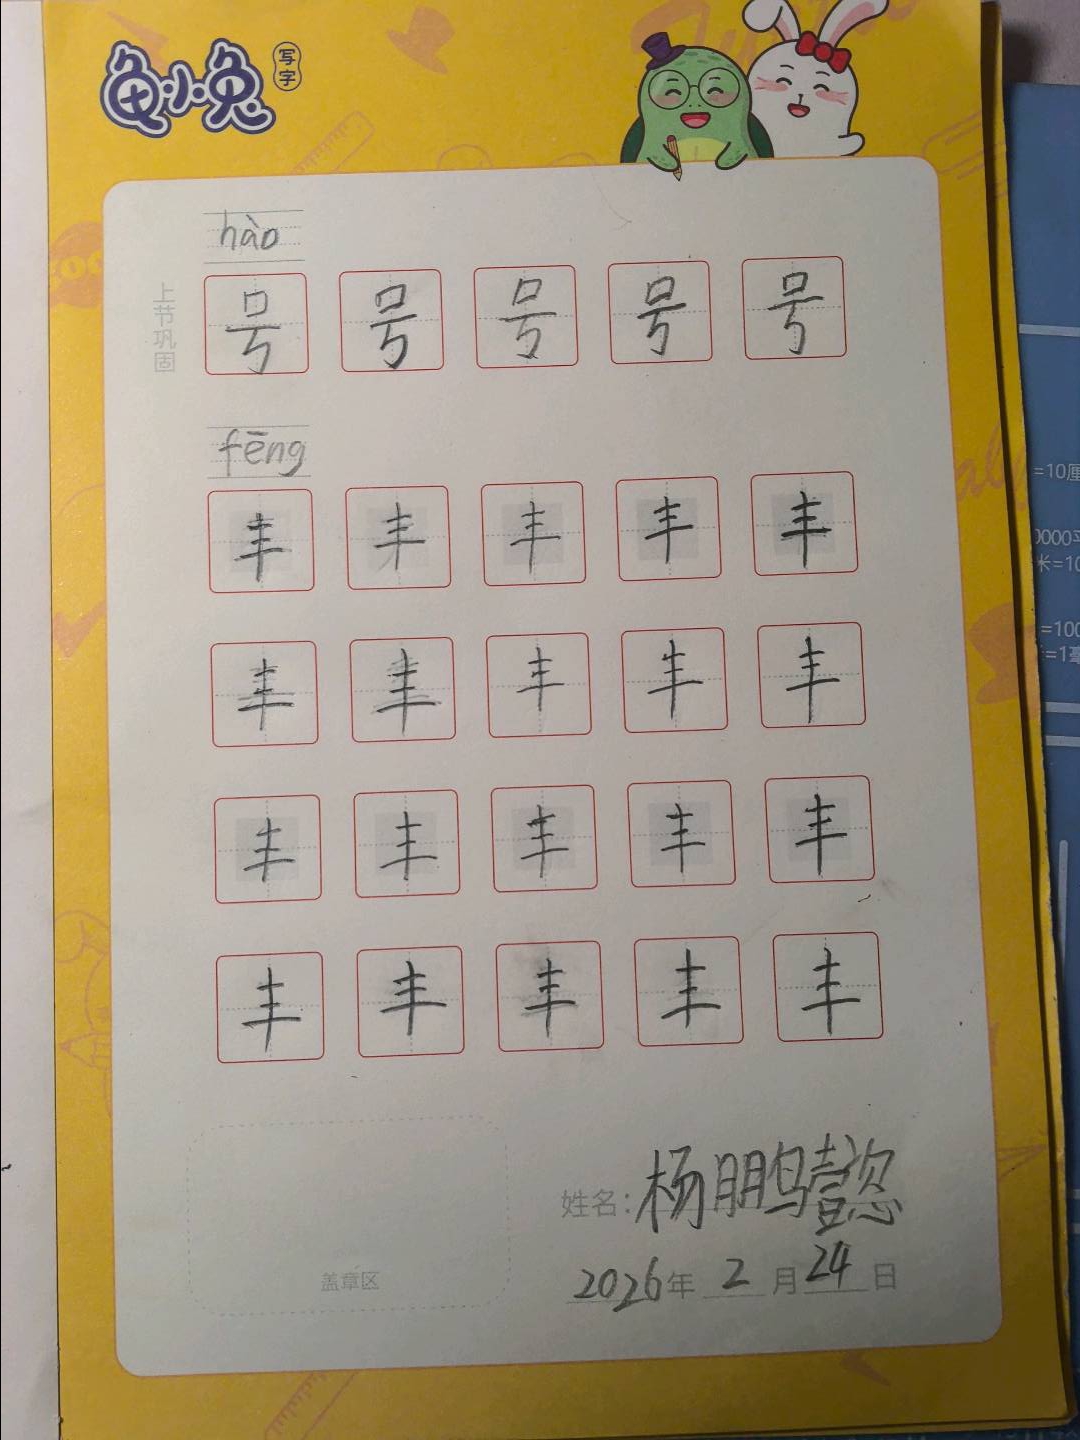 龟小兔 写字
hào
上节巩固
号 号 号 号 号
fēng
丰 丰 丰 丰 丰
丰 丰 丰 丰 丰
丰 丰 丰 丰 丰
丰 丰 丰 丰 丰
姓名：杨朋鹏懿
盖章区
2026年 2 月 24 日
=10厘
=100
=1毫